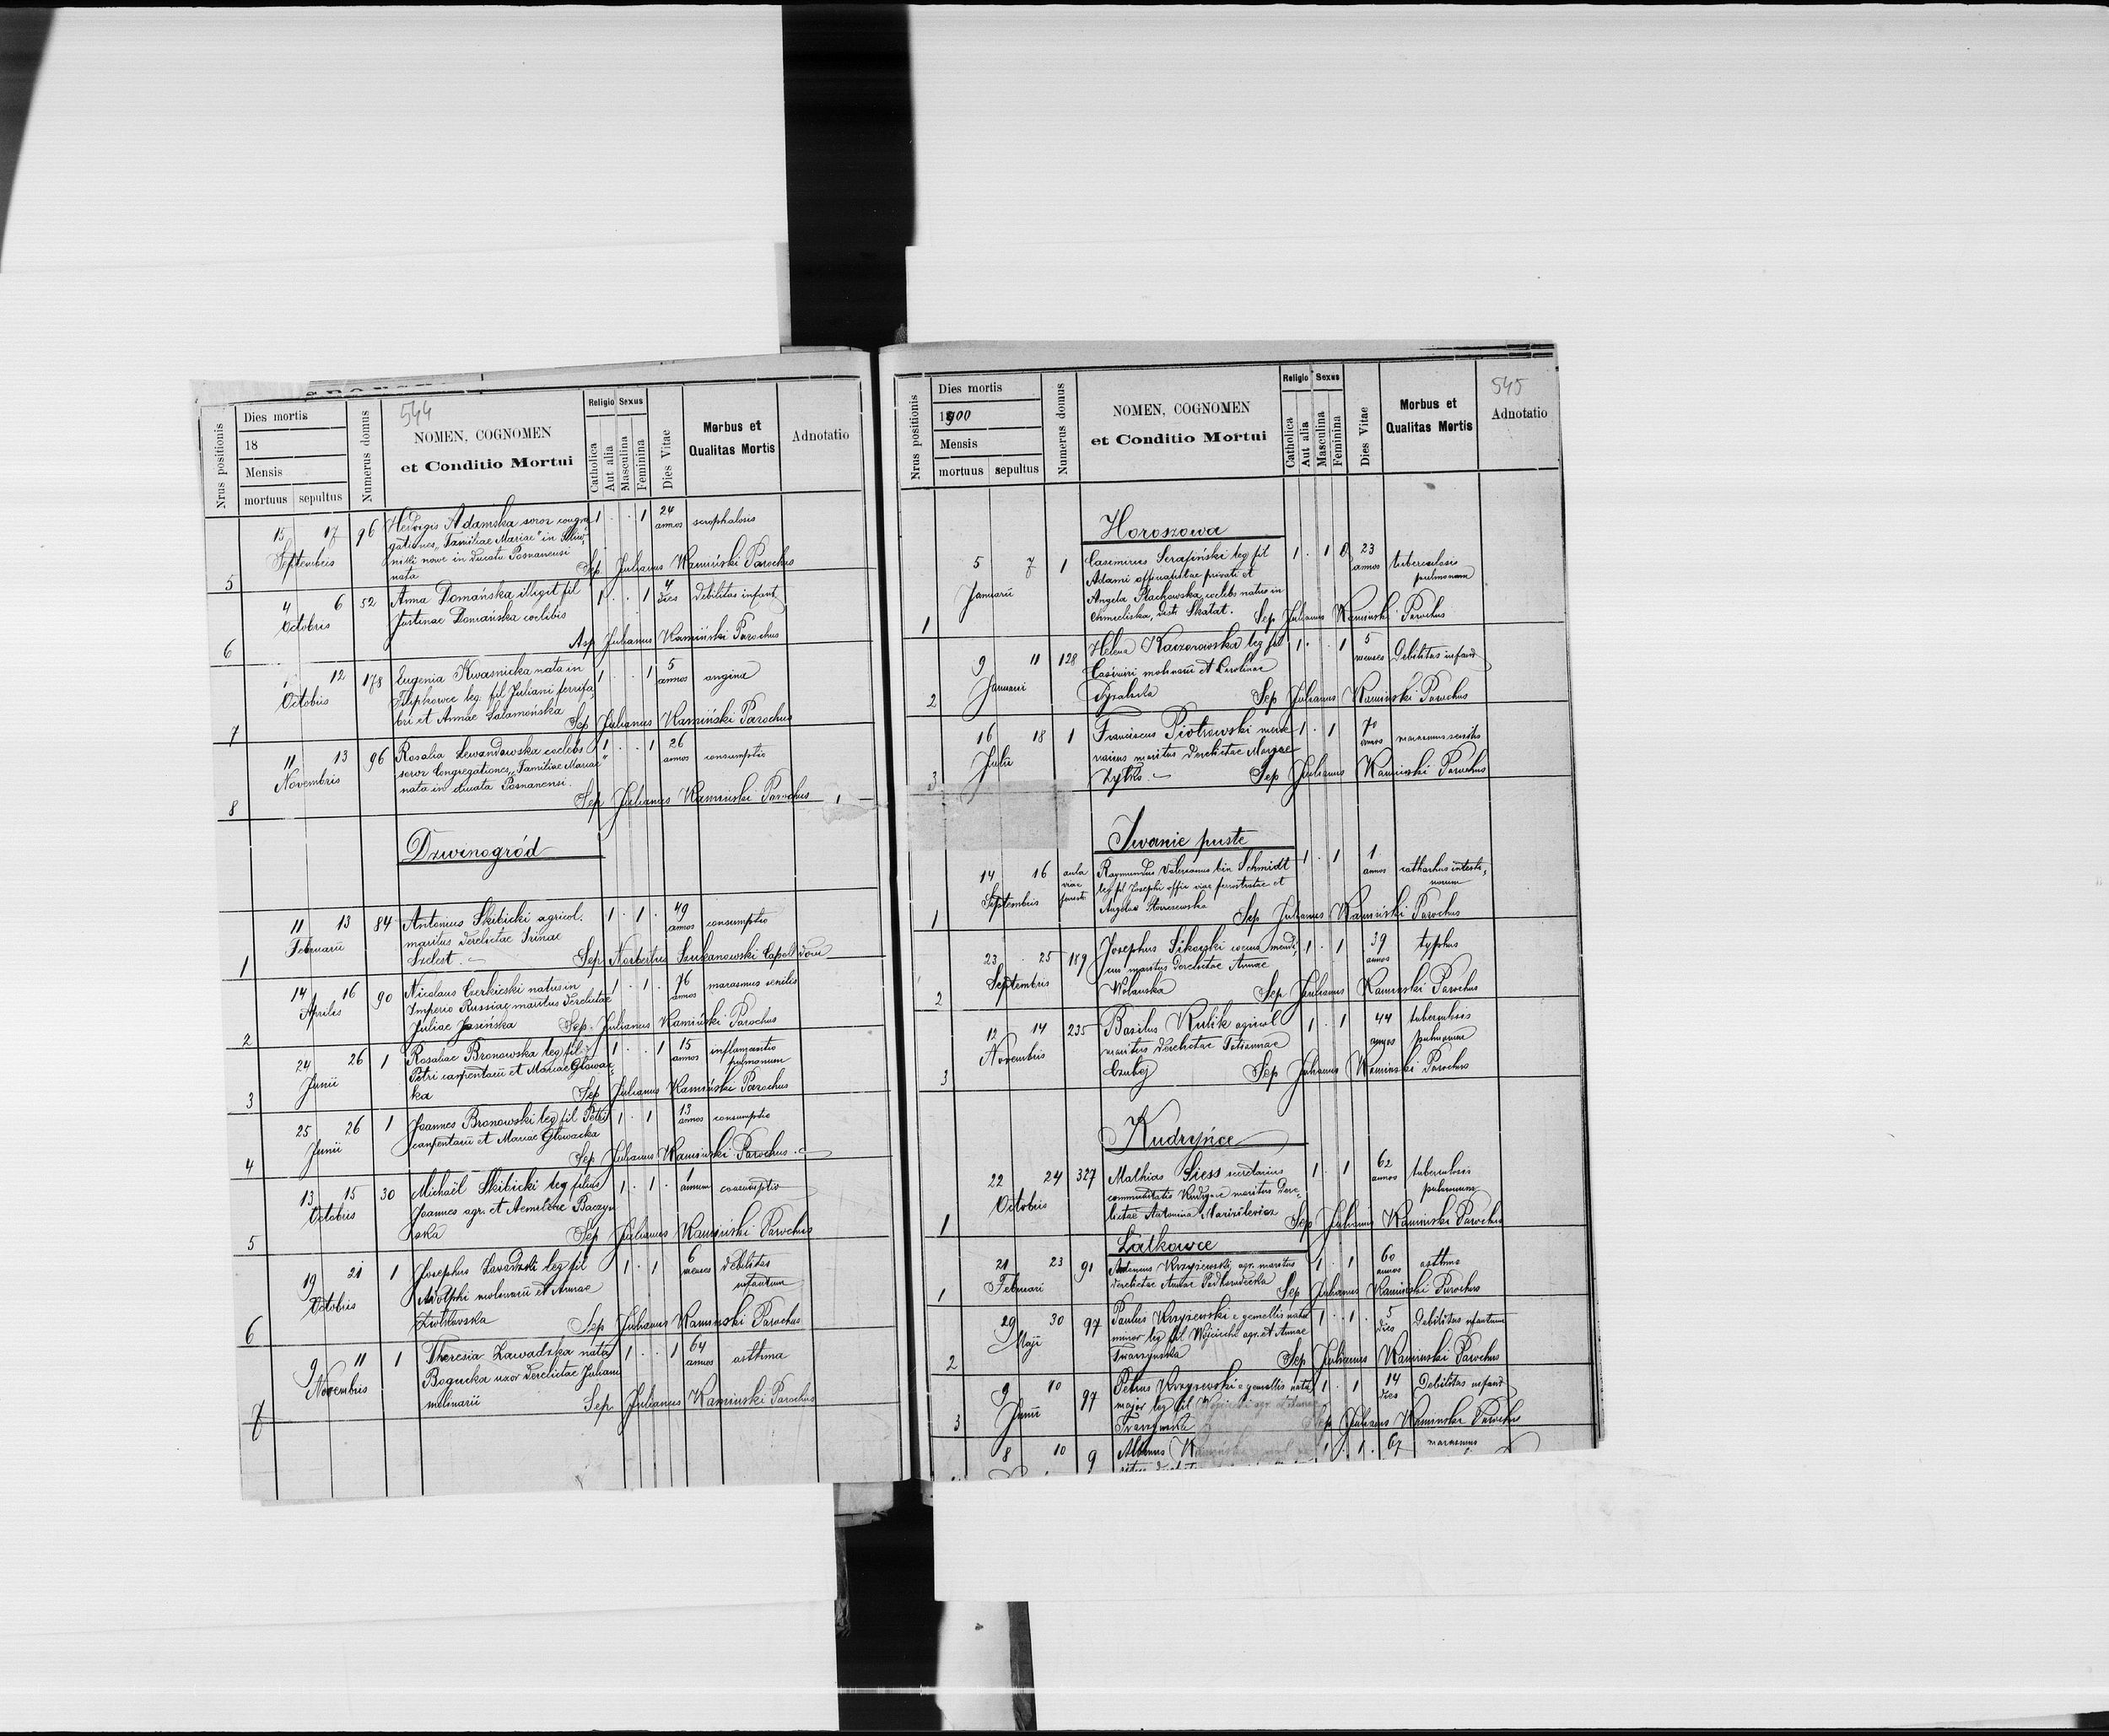 544
Nrus positionis
Dies mortis
18
Mensis
mortuus sepultus
Numerus domus
NOMEN, COGNOMEN
et Conditio Mortui
Religio Sexus
Catholica
Aut alia
Masculina
Feminina
Dies Vitae
Morbus et
Qualitas Mortis
Adnotatio
15 17 96 Hedvigis Adamska soror congre 1 . . 1 24 scrophulosis
September gationes "Familiae Mariae" in annos
nowe in ducatu Posnanensi
5 nata Sep Julianus Kamiński Parochus
4 6 52 Anna Domańska illegit fil 1 . . 1 4 debilitas infant
Octobris Justinae Domańska coelibis dies
6 Asp Julianus Kamiński Parochus
12 178 Eugenia Kwasnicka nata in 1 . . 1 5 angina
Octobris Filipkowce leg. fil Juliani ferrifa annos
bri et Annae Salamońska
7 Sep Julianus Kamiński Parochus
11 13 96 Rosalia Lewandowska coelebs 1 . . 1 26 consumptio
Novembris soror Congregationes "Familiae Mariae" annos
nata in ducata Posnanensi.
8 Sep Julianus Kamiński Parochus
Dzwinogród
11 13 84 Antonius Skibicki agricol. 1 . 1 . 49 consumptio
Februarii maritus derelictae Irinae annos
1 Szelest. Sep Norbertus Szukanowski Capel dom
14 16 90 Nicolaus Czerkieski natus in 1 . 1 . 76 marasmus senilis
Aprilis Imperio Russiae maritus derelictae annos
2 Juliae Jasinska Sep. Julianus Kamiński Parochus
24 26 1 Rosaliae Bronowska leg fil. 1 . . 1 15 inflamantio
Junii Petri carpentarii et Mariae Głowac annos pulmonum
3 ka Sep Julianus Kamiński Parochus
25 26 1 Joannes Bronowski leg fil Petri 1 . 1 13 consumptio
Junii carpentarii et Mariae Głowacka annos
4 Sep Julianus Kamiński Parochus
13 15 30 Michaël Skibicki leg filius 1 . 1 . 1 consumptio
Octobris Joannes agr. et Aemiliae Baczyn annum
5 ska Sep Julianus Kamiński Parochus
19 21 1 Josephus Zawadzki leg fil 1 . 1 6 debilitas
Octobris Adolphi molinarii et Annae menses infantum
6 Sep Julianus Kamiński Parochus
9 11 1 Theresia Zawadzka nata 1 . . 1 64 asthma
Novembris Bogucka uxor derelictae Juliani annos
7 molinarii Sep Julianus Kaminski Parochus
545
Nrus positionis
Dies mortis
1900
Mensis
mortuus sepultus
Numerus domus
NOMEN, COGNOMEN
et Conditio Mortui
Religio Sexus
Catholica
Aut alia
Masculina
Feminina
Dies Vitae
Morbus et
Qualitas Mortis
Adnotatio
Horoszowa
5 7 1 Casimirus Serafiński leg fil 1 . 1 0 23 tuberculosis
Januarii Adami officialistae privati et annos pulmonum
Angela Stachowska, coelebs natus in
1 Chmieliska, distr Skałat. Sep Julianus Kamiński Parochus
9 11 128 Helena Kaczorowska leg fil 1 . . 1 5 Debilitas infant
Januarii Casimiri molinarii et Carolinae menses
2 Sep Julianus Kaminski Parochus
16 18 1 Franciscus Piotrowski 1 . 1 70 marasmus senilis
Julii maritus derelictae Maryae annos
3 Zytko Sep Julianus Kaminski Parochus
Iwanie puste
14 16 aula Raymundus Valerianus bin Schmidt 1 . 1 1 catharhus intesti,
Septembris viae leg fil Josephi offic viae ferrostratae et annos norum
1 Angelae Sep Julianus Kamiński Parochus
23 25 189 Josephus Sikorski mendi, 1 . 1 39 typhus
Septembris maritus derelictae Annae annos
2 Wolanska Sep Julianus Kaminski Parochus
12 14 235 Basilus Kulik agricol 1 . 1 44 tuberculosis
Novembris maritus derelictae Tatiannae annos pulmonum
3 Sep Julianus Kaminski Parochus
Kudryńce
22 24 327 Mathias Siess secretarius 1 . 1 62 tuberculosis
Octobris communitatis Kudrynce maritus dere, annos pulmonum
1 lictae Antonina Sep Julianus Kaminski Parochus
Latkowce
21 23 91 Antonius Krzyżewski agr. maritus 1 . 1 60 asthma
Februari derelictae Annae Podhorodecka annos
1 Sep Julianus Kamiński Parochus
29 30 97 Paulus Krzyżewski e gemellis natu 1 . 1 . 5 Debilitas infantum
Maji minor leg fil Wojciecha agr. et Annae dies
2 Twarzynska Sep Julianus Kaminski Parochus
9 10 97 Petrus Krzyżewski e gemellis natu 1 . 1 14 Debilitas infant
Junii major leg fil Wojciechi agr. et Annae dies
3 Twarzynska Sep Julianus Kaminski Parochus
8 10 9 Albinus 1 . 1 . 67 marasmus